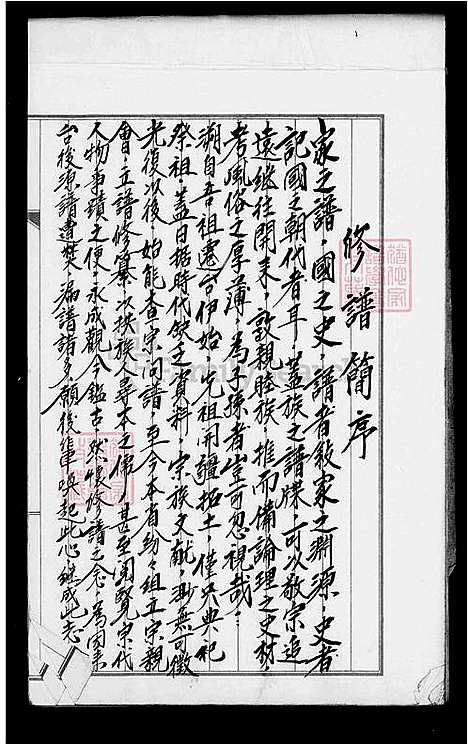 修譜簡序
家之譜，國之史，譜者敘家之淵源，史者
記國之朝代者耳，蓋族之譜牒，可以敬宗追
遠繼往開來，敦親睦族，推而備論理之史材，
考風俗之厚薄，為子孫者豈可忽視哉。
溯自吾祖遷台伊始，先祖開疆拓土，僅興典祀
祭祖，蓋日据時代缺乏資料，宗族文献，渺無可徵
光復以後，始能查宗问譜，至今本省紛々組立宗親
會，立譜修纂，以扶族人尋本之佛，甚至閱覽宗代
人物事蹟之便，永成觀今鑑古，然懷修譜之念，為因来
台後源譜遭焚，漏譜諸多，願後輩喚起此心，繼成此志